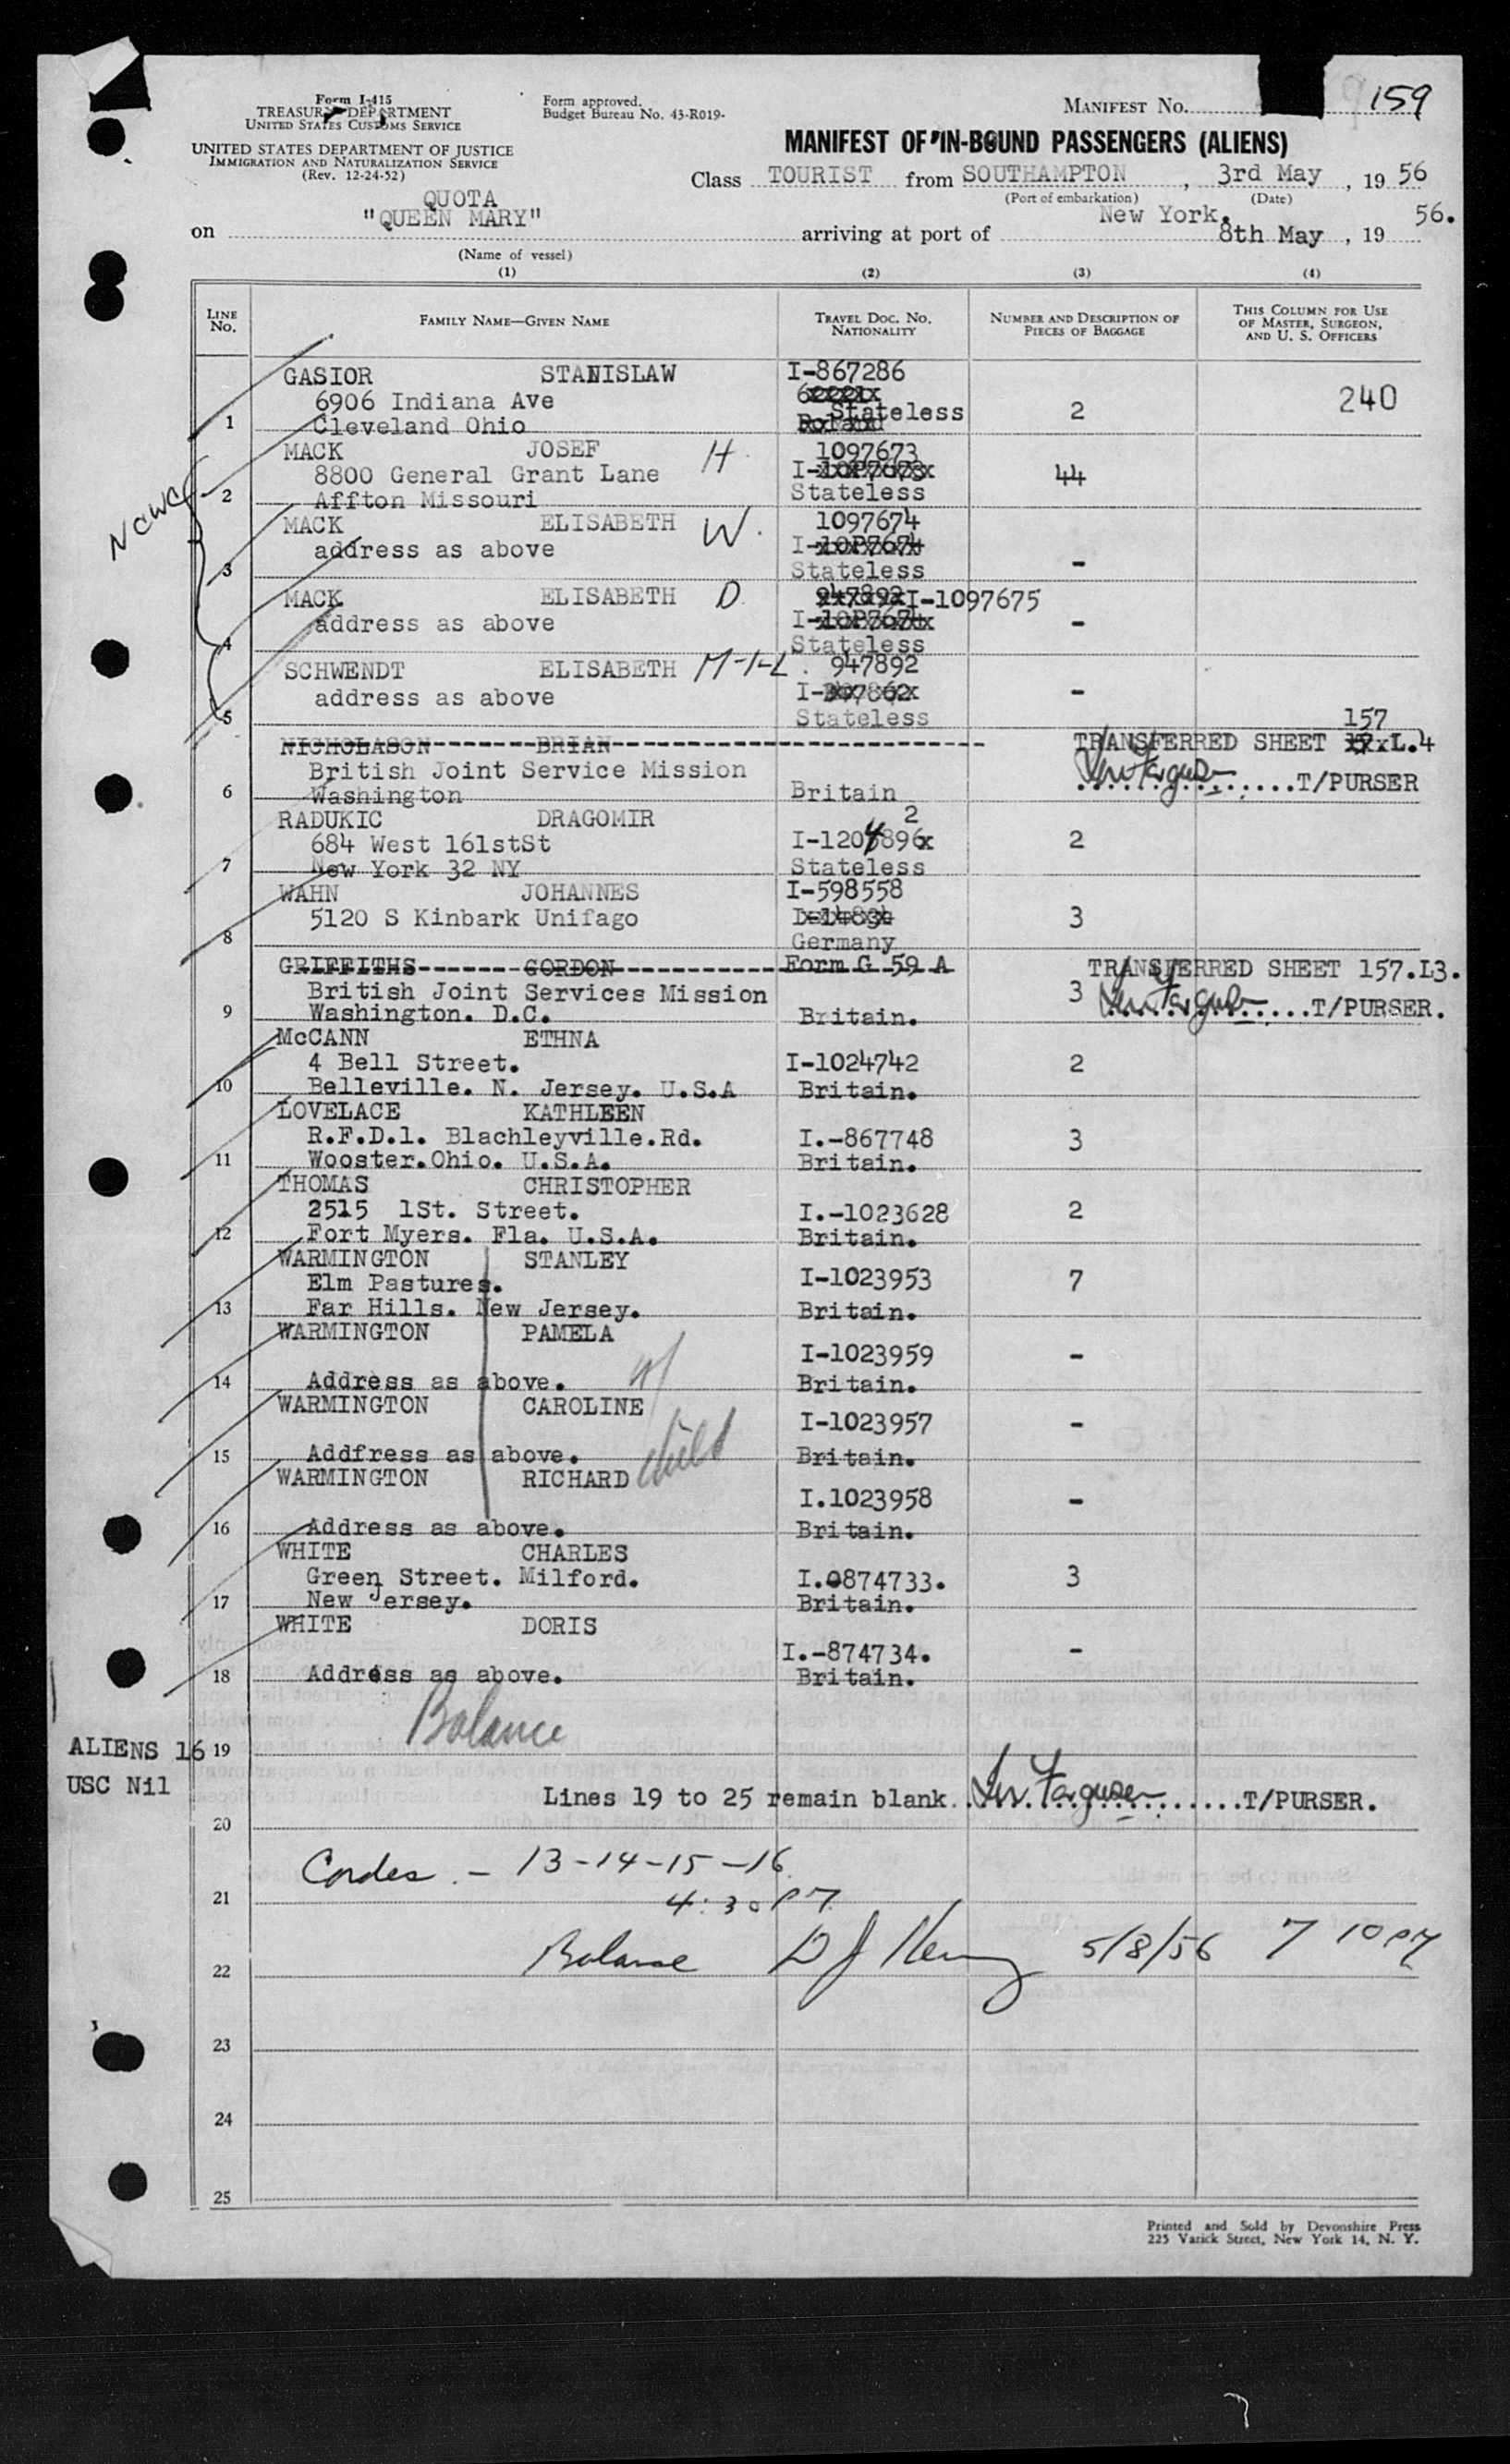 Form I-415
TREASURY DEPARTMENT
UNITED STATES CUSTOMS SERVICE
UNITED STATES DEPARTMENT OF JUSTICE
IMMIGRATION AND NATURALIZATION SERVICE
(Rev. 12-24-52)
Form approved.
Budget Bureau No. 43-R019-
MANIFEST No. 159
MANIFEST OF IN-BOUND PASSENGERS (ALIENS)
Class TOURIST from SOUTHAMPTON, 3rd May, 19 56
(Port of embarkation) (Date)
QUOTA
on "QUEEN MARY" arriving at port of New York. 8th May, 19 56.
(Name of vessel)
(1) (2) (3) (4)
LINE No. FAMILY NAME—GIVEN NAME TRAVEL DOC. NO. NATIONALITY NUMBER AND DESCRIPTION OF PIECES OF BAGGAGE THIS COLUMN FOR USE OF MASTER, SURGEON, AND U. S. OFFICERS
GASIOR STANISLAW I-867286
6906 Indiana Ave Stateless 2 240
1 Cleveland Ohio
MACK JOSEF H. 1097673
8800 General Grant Lane I- 44
2 Affton Missouri Stateless
MACK ELISABETH W. 1097674
address as above I-
3 Stateless -
MACK ELISABETH D. I-1097675
address as above I- -
4 Stateless
SCHWENDT ELISABETH M-I-L. 947892
address as above I- -
5 Stateless
157
NICHOLASON BRIAN TRANSFERRED SHEET L.4
British Joint Service Mission T/PURSER
6 Washington Britain
RADUKIC DRAGOMIR 2
684 West 161stSt I-1204896x 2
7 New York 32 NY Stateless
WAHN JOHANNES I-598558
5120 S Kinbark Unifago 3
8 Germany
GRIFFITHS GORDON Form G 59 A TRANSFERRED SHEET 157.L3.
British Joint Services Mission 3 T/PURSER.
9 Washington. D.C. Britain.
McCANN ETHNA
4 Bell Street. I-1024742 2
10 Belleville. N. Jersey. U.S.A Britain.
LOVELACE KATHLEEN
R.F.D.1. Blachleyville.Rd. I.-867748 3
11 Wooster.Ohio. U.S.A. Britain.
THOMAS CHRISTOPHER
2515 1St. Street. I.-1023628 2
12 Fort Myers. Fla. U.S.A. Britain.
WARMINGTON STANLEY
Elm Pastures. I-1023953 7
13 Far Hills. New Jersey. Britain.
WARMINGTON PAMELA
I-1023959 -
14 Address as above. W Britain.
WARMINGTON CAROLINE
I-1023957 -
15 Addfress as above. Britain.
WARMINGTON RICHARD child
I.1023958 -
16 Address as above. Britain.
WHITE CHARLES
Green Street. Milford. I.0874733. 3
17 New Jersey. Britain.
WHITE DORIS
I.-874734. -
18 Address as above. Britain.
Balance
ALIENS 16 19
USC Nil
Lines 19 to 25 remain blank. T/PURSER.
20
Cordes. - 13-14-15-16
21 4:30 PM
Balance 5/8/56 7 10 PM
22
23
24
25
Printed and Sold by Devonshire Press
225 Varick Street, New York 14, N. Y.